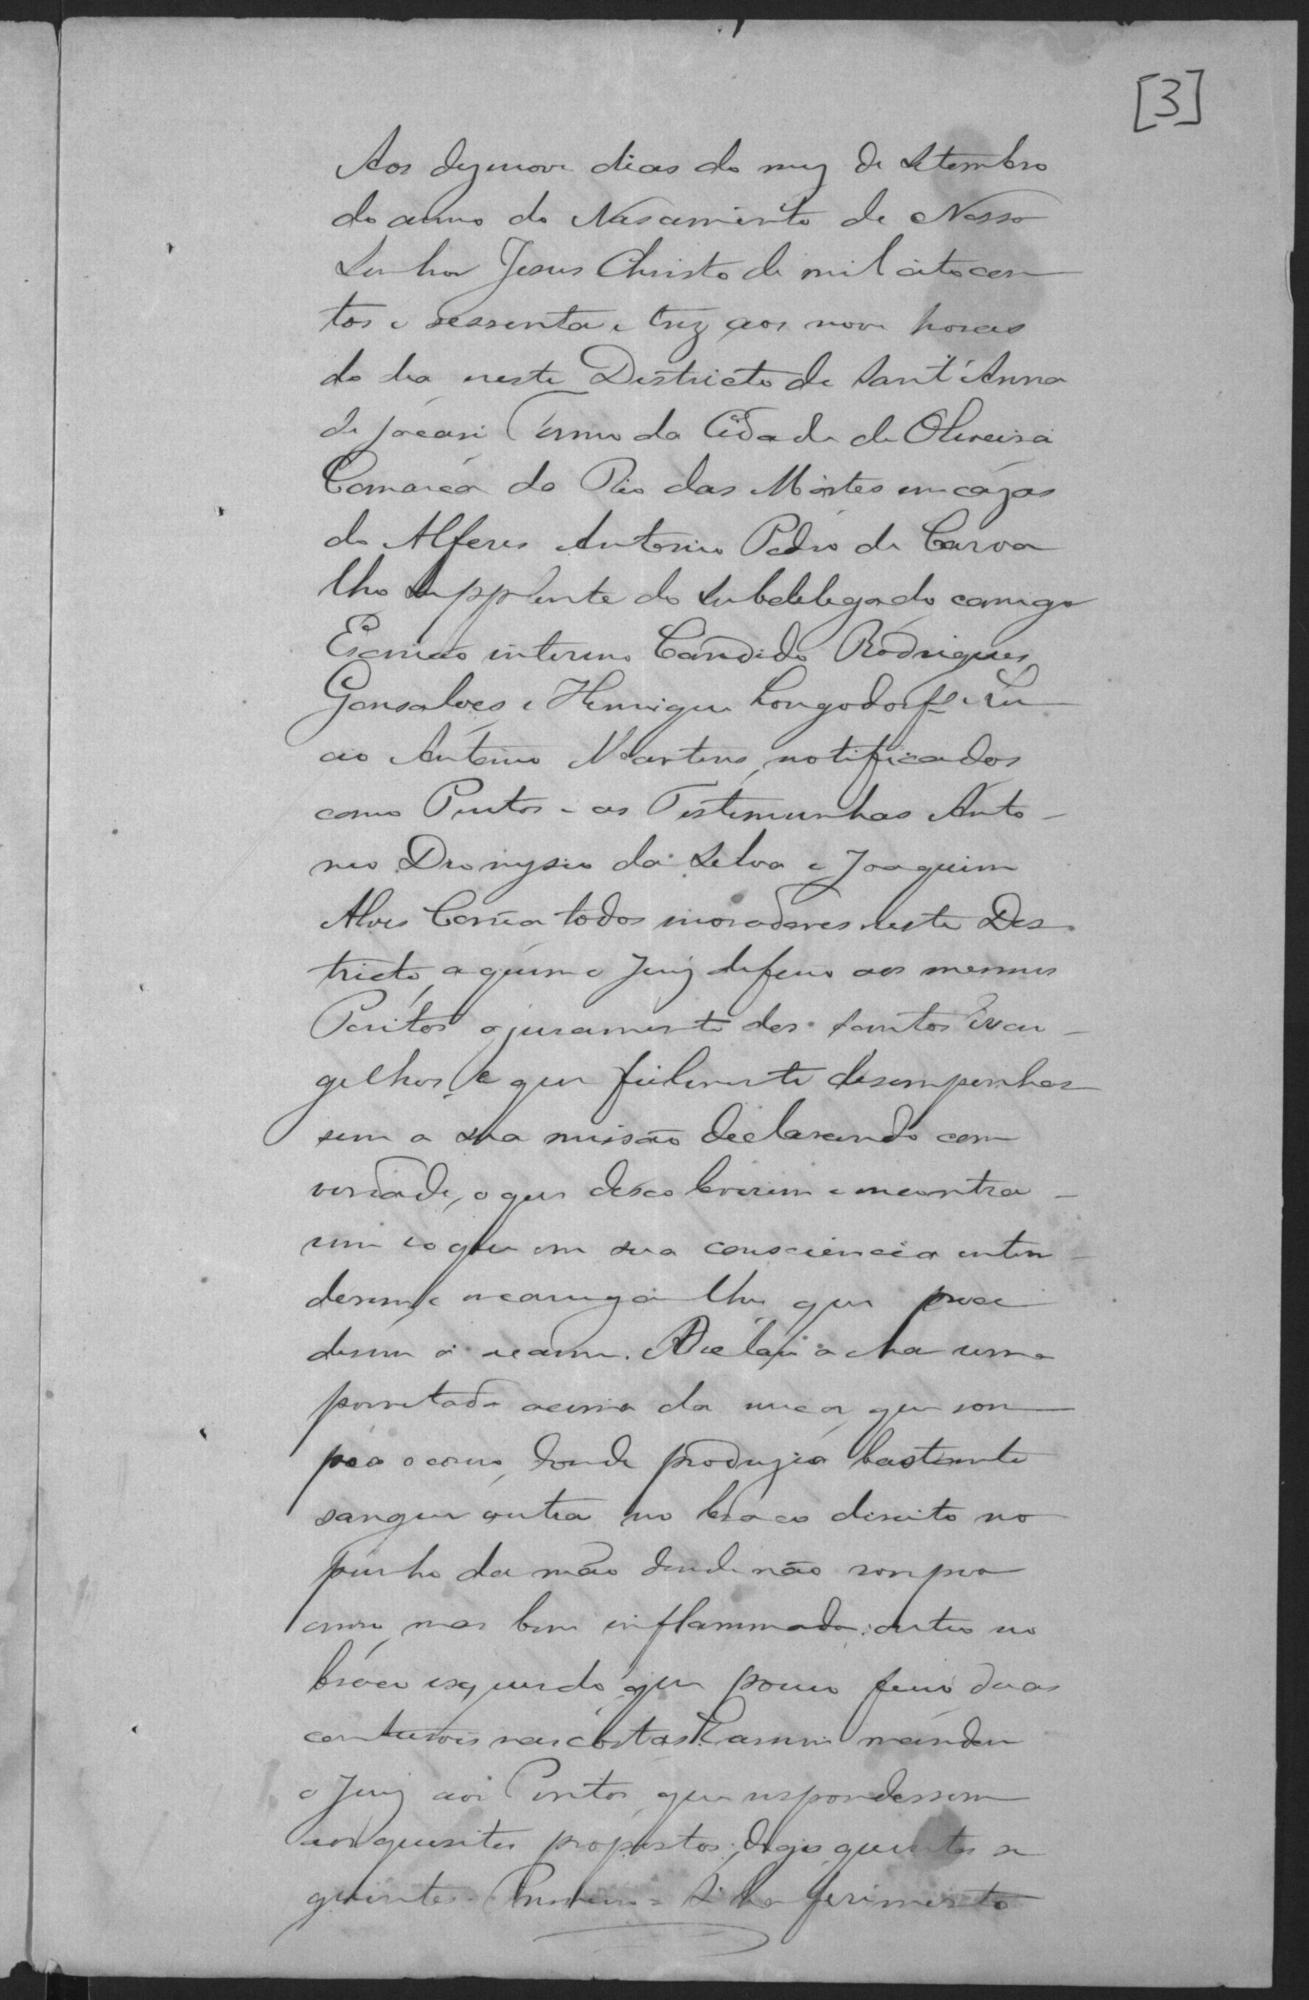 [3]
Aos dezenove dias do mez de Setembro
do anno do Nascimento de Nosso
Senhor Jesus Christo de mil oitocen
tos e sessenta e trez aos nove horas
do dia neste Destricto de Sant'Anna
de Jacaré Termo da Cidade de Oliveira
Comarca do Rio das Mortes em cazas
do Alferes Antonio Pedro de Carva
lho Supplente do Subdelegado comigo
Escrivão interino Candido Rodrigues
Gonsalves e Henrique Longodorff e
Antonio Martins, notificados
como Peritos - as Testimunhas Anto -
nio Dionysio da Silva e Joaquim
Alves Corrêa todos moradores neste Des
tricto, a quem o Juiz deferio aos mesmos
Peritos o juramento dos Santos Evan -
gelhos, e que fielmente desempenhas
sem a sua missão declarando com
verdade, o que descobrirem e encontra -
rem e o que em sua consciencia enten -
derem, e encarregou lhes que proce
desem a exame. a cha uma
porretada acima da nuca, que rom
peo o couro, donde produzio bastante
sangue outra no braço direito no
punho da mão donde não rompeo
couro, mas bem inflammado, outra no
braço esquerdo que pouco ferio, duas
contusois nas costas. E assim mandou
o Juiz aos Peritos que respondessem
aos quesitos propostos, digo, quesitos se
guintes - Primeiro = Si ha ferimento